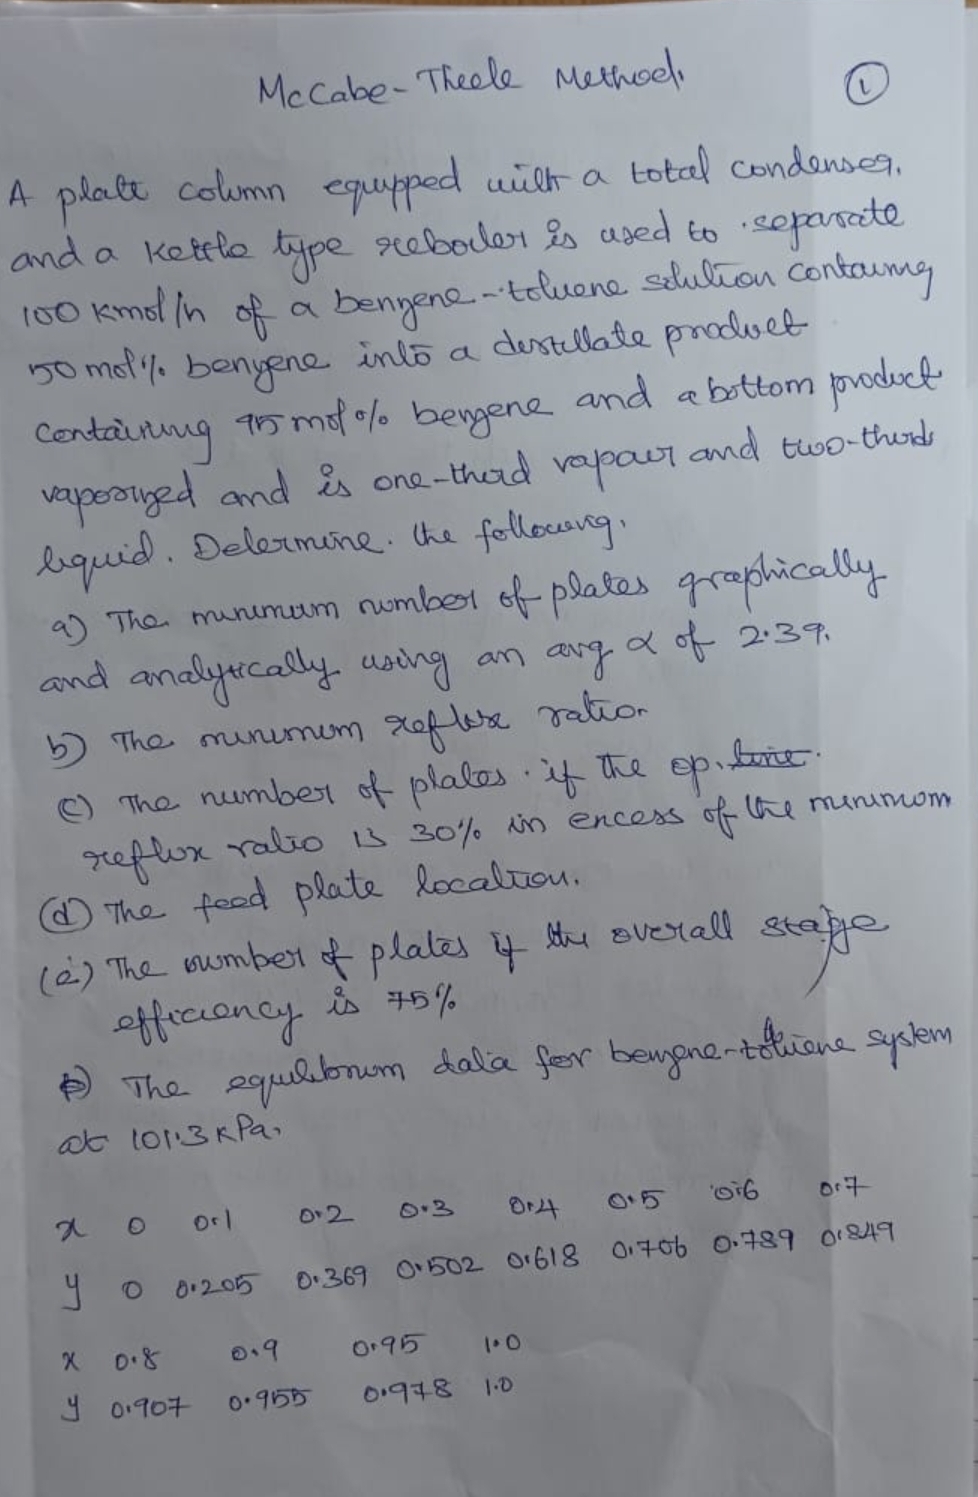 McCabe-Theele Method.
1
A plate column equpped with a total condenser.
and a kettle type reboiler is used to separate
100 kmol/h of a benzene-toluene solution containing
50 mol% benzene into a destillate product
containing 95 mol% benzene and a bottom product
vaporized and is one-third vapour and two-thirds
liquid. Determine. the following.
a) The minimum number of plates graphically
and analytically using an avg α of 2.39.
b) The minimum reflux ratio
(c) The number of plates if the op. line
reflux ratio is 30% in excess of the minimum
(d) The feed plate location.
(e) The number of plates if the overall stage
efficiency is 75%
The equilibrium data for benzene-toluene system
at 101.3 kPa.
x 0 0.1 0.2 0.3 0.4 0.5 0.6 0.7
y 0 0.205 0.369 0.502 0.618 0.706 0.789 0.849
x 0.8 0.9 0.95 1.0
y 0.907 0.955 0.978 1.0